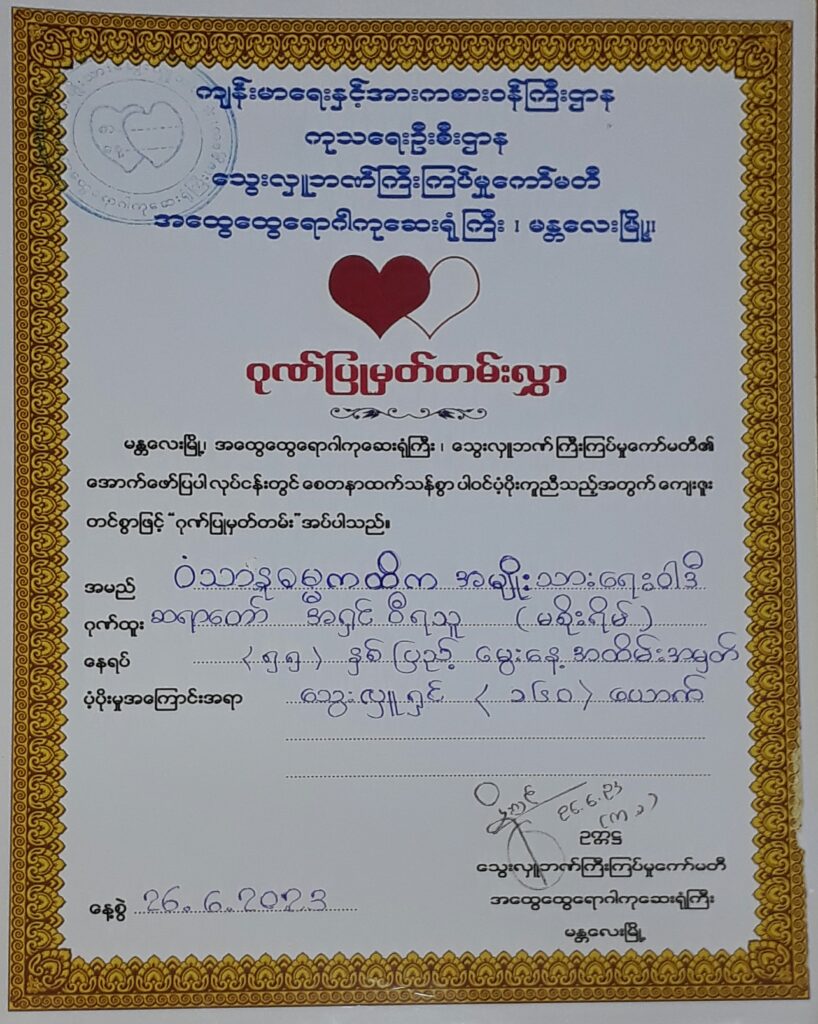 ကျန်းမာရေးနှင့်အားကစားဝန်ကြီးဌာန
ကုသရေးဦးစီးဌာန
သွေးလှူဘဏ်ကြီးကြပ်မှုကော်မတီ
အထွေထွေရောဂါကုဆေးရုံကြီး ၊ မန္တလေးမြို့။
ဂုဏ်ပြုမှတ်တမ်းလွှာ
မန္တလေးမြို့၊ အထွေထွေရောဂါကုဆေးရုံကြီး ၊ သွေးလှူဘဏ် ကြီးကြပ်မှုကော်မတီ၏
အောက်ဖော်ပြပါ လုပ်ငန်းတွင် စေတနာထက်သန်စွာ ပါဝင်ပံ့ပိုးကူညီသည့်အတွက် ကျေးဇူး
တင်စွာဖြင့် “ဂုဏ်ပြုမှတ်တမ်း” အပ်ပါသည်။
အမည် ဝံသာနုဓမ္မကထိက အမျိုးသားရေးဝါဒီ
ဂုဏ်ထူး ဆရာတော် အရှင် ဝီရသူ ( မစိုးရိမ် )
နေရပ် ( ၅၅ ) နှစ် ပြည့် မွေးနေ့ အထိမ်းအမှတ်
ပံ့ပိုးမှုအကြောင်းအရာ သွေးလှူရှင် ( ၁၆၀ ) ယောက်
ဥက္ကဋ္ဌ
သွေးလှူဘဏ်ကြီးကြပ်မှုကော်မတီ
အထွေထွေရောဂါကုဆေးရုံကြီး
မန္တလေးမြို့
နေ့စွဲ 26.6.2023